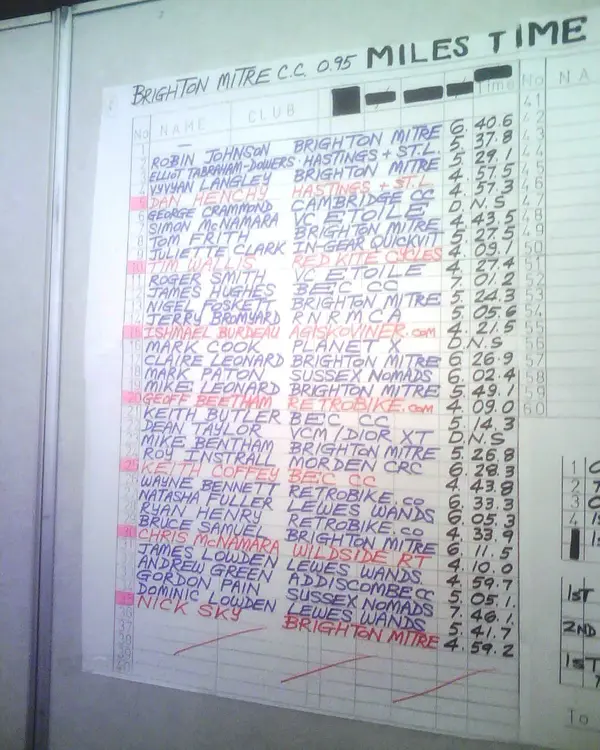 BRIGHTON MITRE C.C. 0.95 MILES TIME
No NAME CLUB Time No NA
ROBIN JOHNSON BRIGHTON MITRE 6. 40.6
ELLIOT TABRAHAM-DOWERS HASTINGS + ST.L. 5. 37.8
VYVYAN LANGLEY BRIGHTON MITRE 5. 29.1
5 DAN HENCHY HASTINGS + ST.L. 4. 57.5
GEORGE CRAMMOND CAMBRIDGE CC 4. 57.3
SIMON McNAMARA VC ETOILE D.N.S
TOM FRITH BRIGHTON MITRE 4. 43.5
JULIETTE CLARK IN-GEAR QUICKVIT 5. 27.5
10 TIM WALLIS RED KITE CYCLES 4. 09.1
ROGER SMITH VC ETOILE 4. 27.4
JAMES HUGHES BEC CC 7. 01.2
NIGEL FOSKETT BRIGHTON MITRE 5. 24.3
JERRY BROMYARD RNRMCA 5. 05.6
15 ISHMAEL BURDEAU AGISKOVINER.com 4. 21.5
MARK COOK PLANET X D.N.S
CLAIRE LEONARD BRIGHTON MITRE 6 26.9
MARK PATON SUSSEX NOMADS 6. 02.4
MIKE LEONARD BRIGHTON MITRE 5. 49.1
20 GEOFF BEETHAM RETROBIKE.com 4. 09.0
KEITH BUTLER BEC CC 5. 14.3
DEAN TAYLOR VCM/DIOR XT D.N.S
MIKE BENTHAM BRIGHTON MITRE 5. 26.8
ROY INSTRALL MORDEN CRC 6. 28.3
25 KEITH COFFEY BEC CC 4. 43.8
WAYNE BENNETT RETROBIKE.co 6. 33.3
NATASHA FULLER LEWES WANDS 6. 05.3
RYAN HENRY RETROBIKE.co 4. 33.9
BRUCE SAMUEL BRIGHTON MITRE 6. 11.5
30 CHRIS McNAMARA WILDSIDE RT 4. 10.0
JAMES LOWDEN LEWES WANDS 4. 59.7
ANDREW GREEN ADDISCOMBE CC 5. 05.1.
GORDON PAIN SUSSEX NOMADS 7. 46.1.
DOMINIC LOWDEN LEWES WANDS 5. 41.7
35 NICK SKY BRIGHTON MITRE 4. 59.2
41
42
43
44
45
46
47
48
49
50
51
52
53
54
55
56
57
58
59
60
1
2
3
4
1ST
2ND
1ST
To